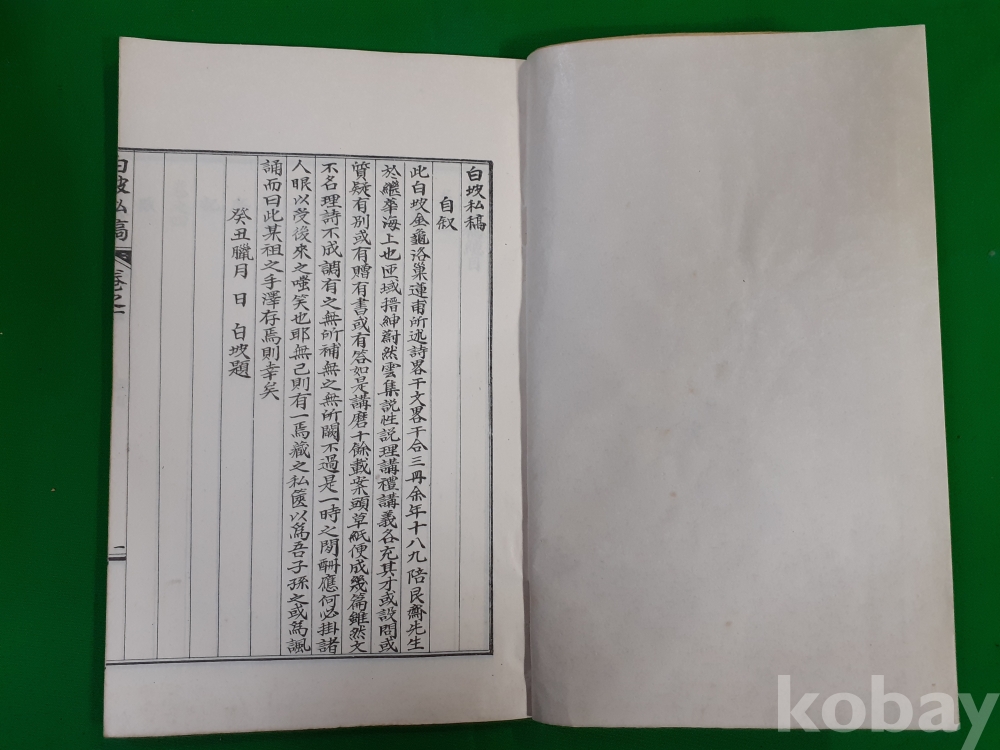 白坡私稿
自叙
此白坡金龜洛巢蓮甫所述詩畧干文畧干合三冊余年十八九陪艮齋先生
於繼華海上也匝域搢紳蔚然雲集説性説理講禮講義各充其才或設問或
質疑有別或有贈有書或有答如是講磨十餘載案頭草紙便成幾篇雖然文
不名理詩不成調有之無所補無之無所闕不過是一時之閒酬應何必掛諸
人眼以受後來之嗤笑也耶無已則有一焉藏之私篋以爲吾子孫之或爲諷
誦而曰此某祖之手澤存焉則幸矣
癸丑臘月 日 白坡題
白坡私稿 卷之一
一
kobay